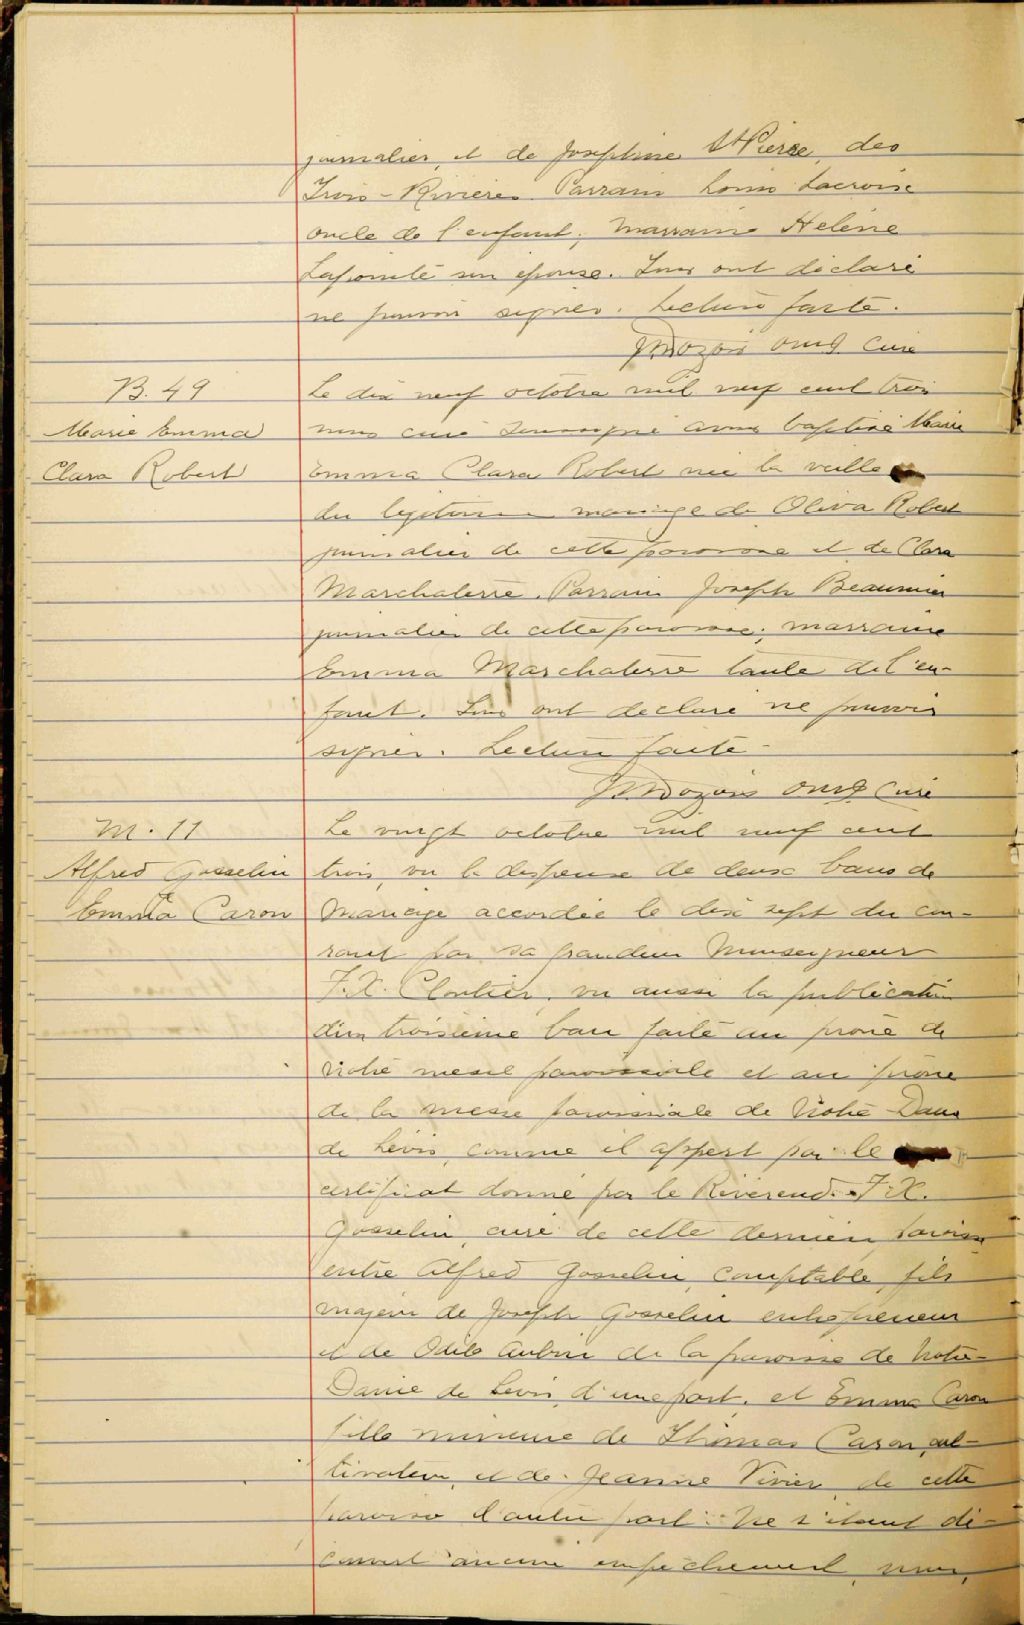 journalier, et de Josephine St Pierre, des
Trois-Rivières. Parrain Louis Lacroix
oncle de l'enfant; marraine Helène
Lapointe son épouse. Tous ont déclaré
ne pouvoir signer. Lecture faite.
Ptre Curé
B. 49
Marie Emma
Clara Robert
Le dix neuf octobre mil neuf cent trois
nous curé soussigné avons baptisé Marie
Emma Clara Robert née la veille
du légitime mariage de Oliva Robert
journalier de cette paroisse et de Clara
Marchaterre. Parrain Joseph Beaumier
journalier de cette paroisse; marraine
Emma Marchaterre tante de l'en-
fant. Tous ont declaré ne pouvoir
signer. Lecture faite-
Curé
M. 11
Alfred Gosselin
&
Emma Caron
Le vingt octobre mil neuf cent
trois, vu la dispense de deux bans de
mariage accordée le dix sept du cou-
rant par sa grandeur Monseigneur
F.X. Cloutier, vu aussi la publication
d'un troisième ban faite au prône de
notre messe paroissiale et au prône
de la messe paroissiale de Notre-Dame
de Lévis, comme il appert par le
certificat donné par le Révérend F.X.
Gosselin, curé de cette dernière paroisse
entre Alfred Gosselin, comptable, fils
majeur de Joseph Gosselin entrepreneur
et de Odile Aubin de la paroisse de Notre-
Dame de Lévis, d'une part, et Emma Caron
fille mineure de Thomas Caron, cul-
tivateur, et de Jeanne Vivier, de cette
paroisse d'autre part. Ne s'étant dé-
couvert aucun empêchement, nous,